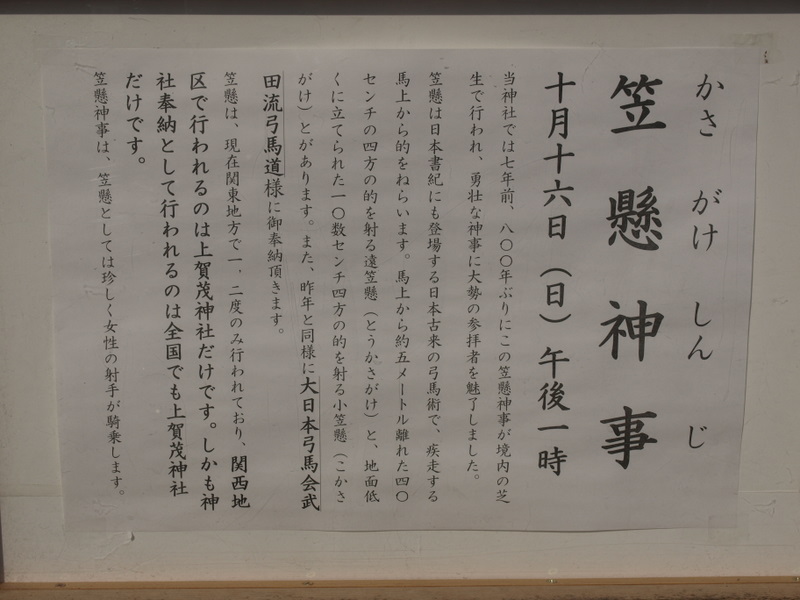 かさ がけ しん じ
笠懸神事
十月十六日(日)午後一時
当神社では七年前、八〇〇年ぶりにこの笠懸神事が境内の芝
生で行われ、勇壮な神事に大勢の参拝者を魅了しました。
笠懸は日本書紀にも登場する日本古来の弓馬術で、疾走する
馬上から的をねらいます。馬上から約五メートル離れた四〇
センチの四方の的を射る遠笠懸(とうかさがけ)と、地面低
くに立てられた一〇数センチ四方の的を射る小笠懸(こかさ
がけ)とがあります。また、昨年と同様に大日本弓馬会武
田流弓馬道様に御奉納頂きます。
笠懸は、現在関東地方で一、二度のみ行われており、関西地
区で行われるのは上賀茂神社だけです。しかも神
社奉納として行われるのは全国でも上賀茂神社
だけです。
笠懸神事は、笠懸としては珍しく女性の射手が騎乗します。